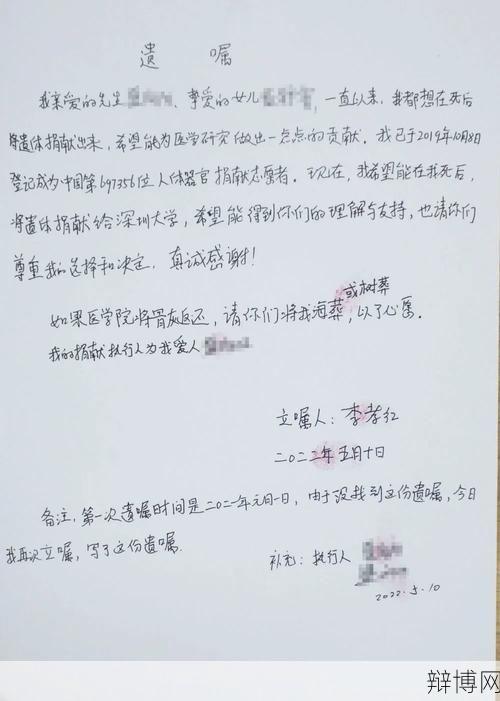 遗 嘱
我亲爱的先生 、挚爱的女儿 ,一直以来,我都想在死后
将遗体捐献出来,希望能为医学研究做出一点点的贡献。我已于2019年10月8日
登记成为中国第697356位人体器官捐献志愿者。现在,我希望能在我死后,
将遗体捐献给深圳大学,希望能得到你们的理解与支持,也请你们
尊重我的选择和决定。真诚感谢!
或树葬
如果医学院将骨灰返还,请你们将我海葬,以了心愿。
我的捐献执行人为我爱人
立嘱人:李孝红
二〇二二年五月十日
备注,第一次遗嘱时间是二〇二一年元月一日,由于没找到这份遗嘱,今日
我再次立嘱,写了这份遗嘱.
补充:执行人
2022.5.10
辩博网